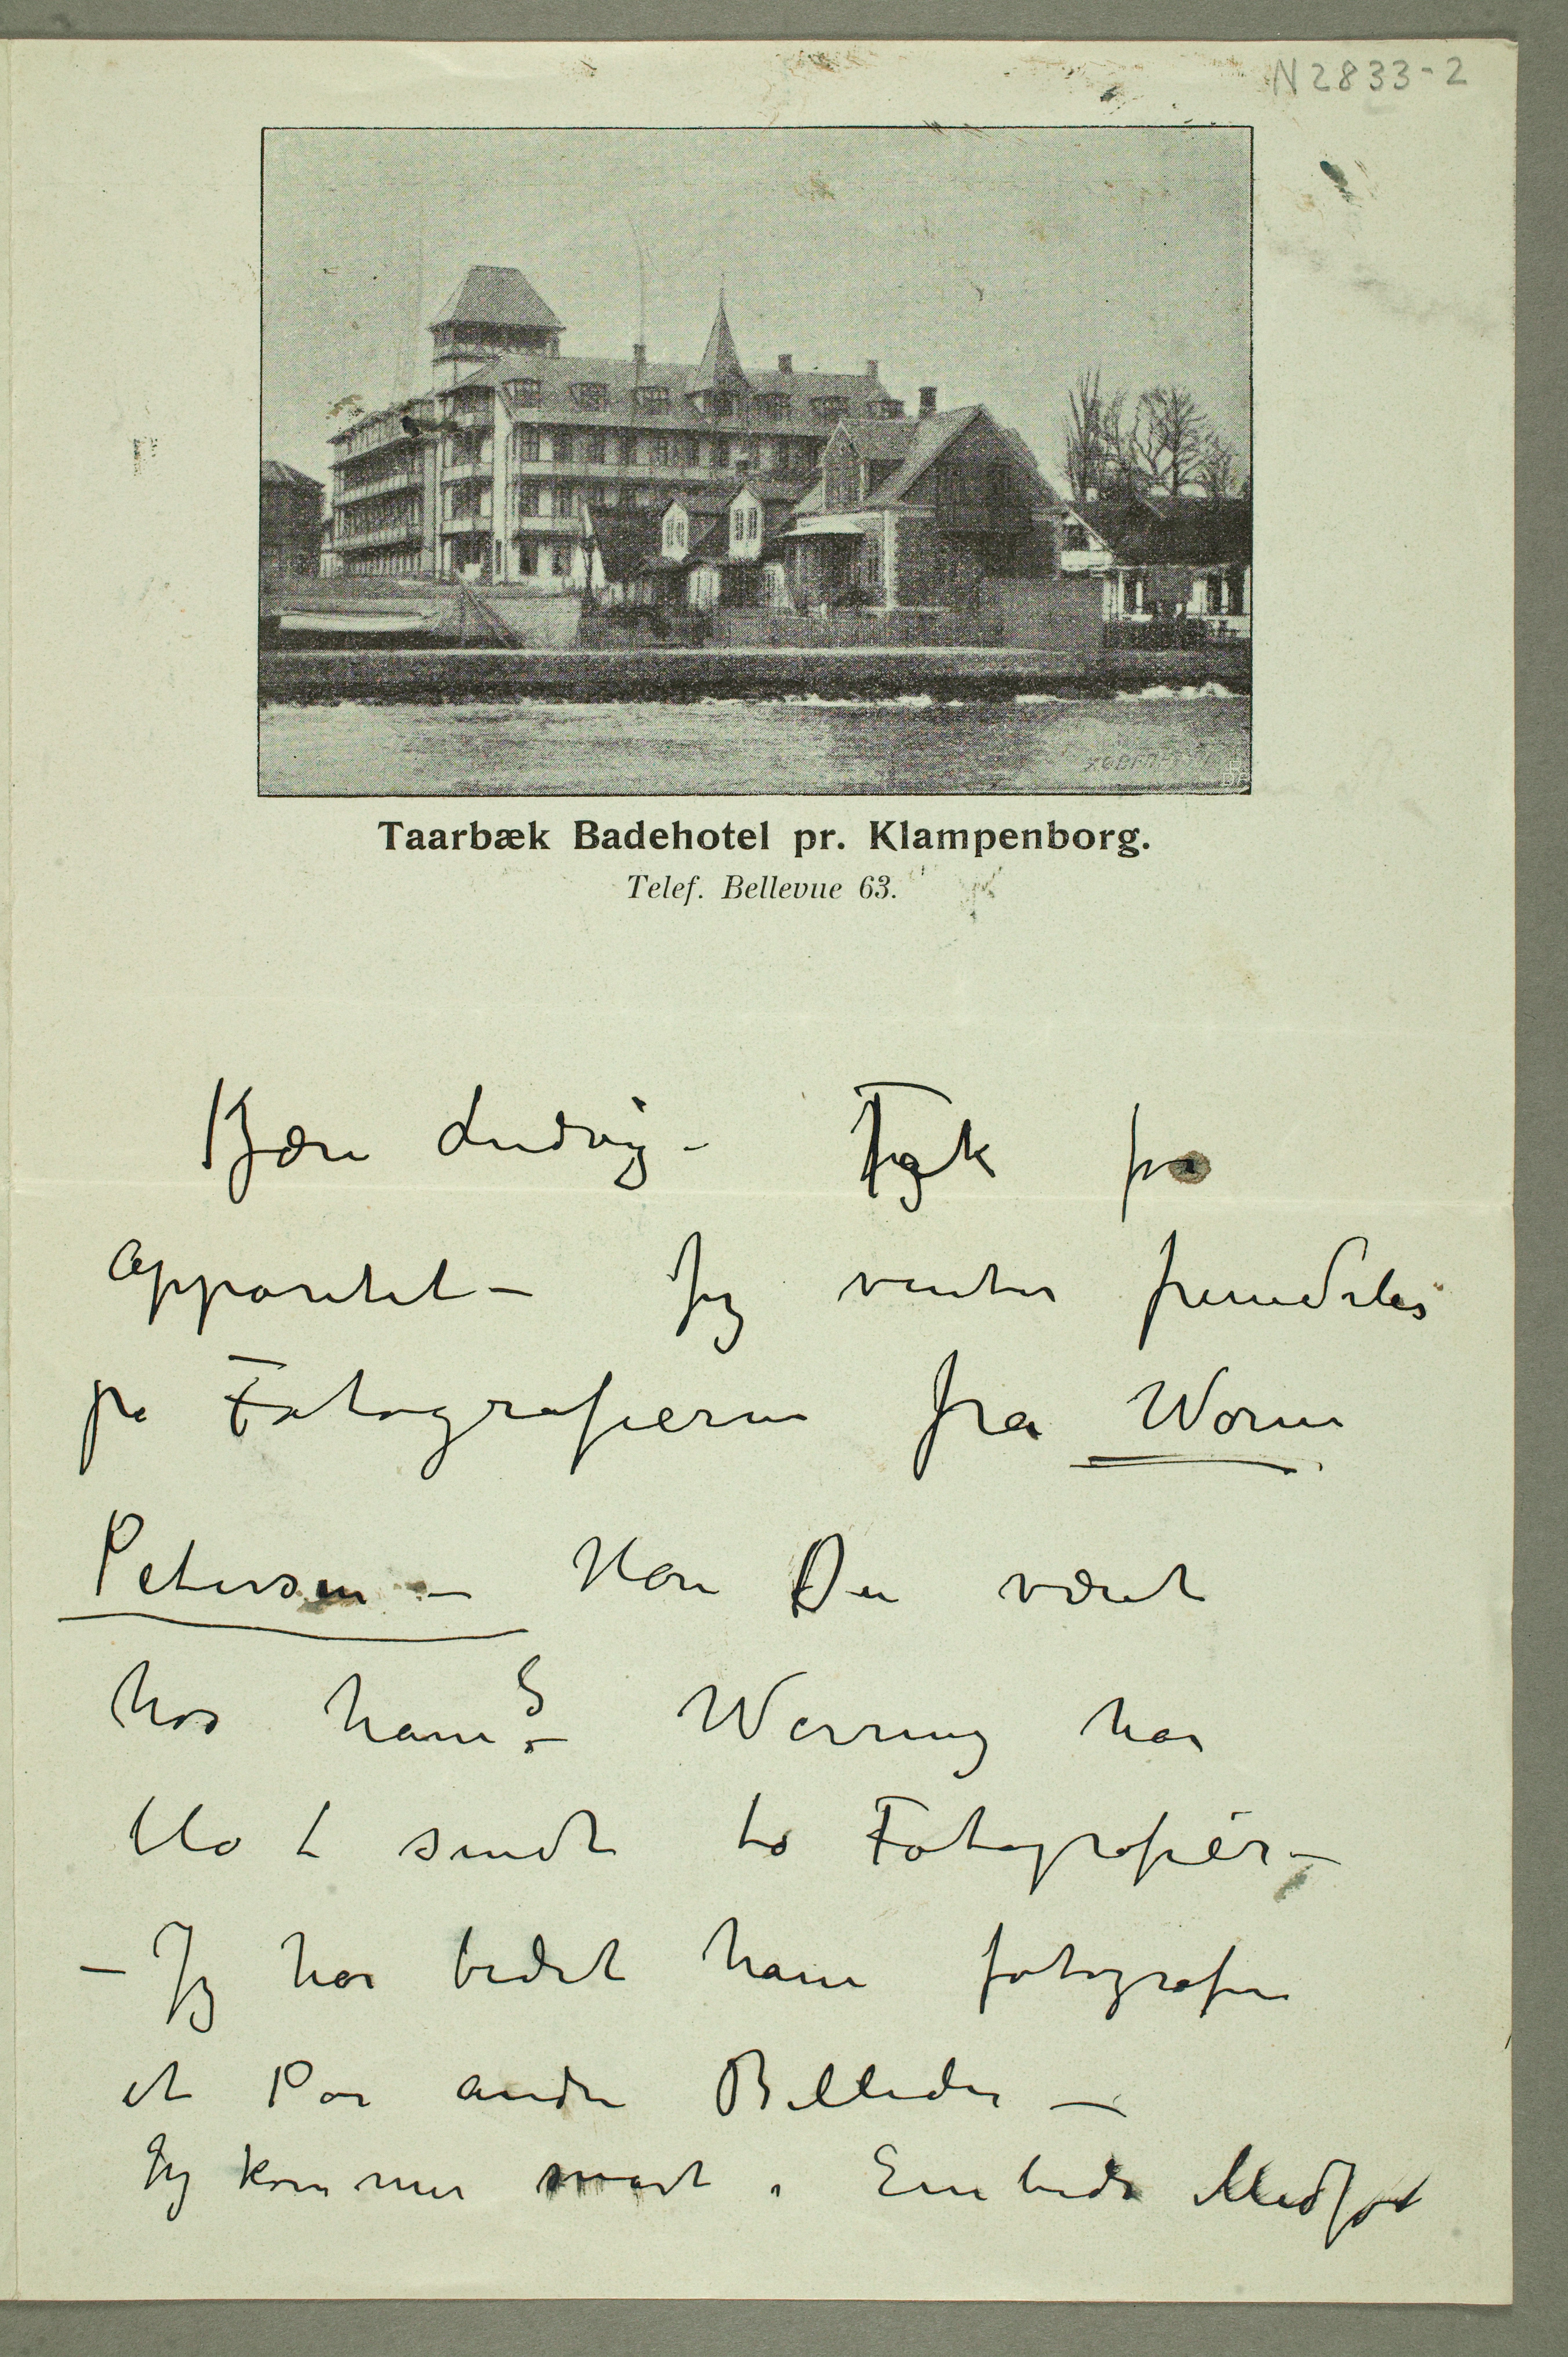 N 2833-2
Taarbæk Badehotel pr. Klampenborg.
Telef. Bellevue 63.
Kjære Ludvig – Tak for
Apparatet – Jeg venter fremdeles
på Fotografierne fra Worm
Petersen – Har Du været
hos ham? – Wærring har
blot sendt to Fotografiér –
– Jeg har bedet ham fotografere
et Par andre Billeder –
Jeg kommer snart i Embeds Medfør